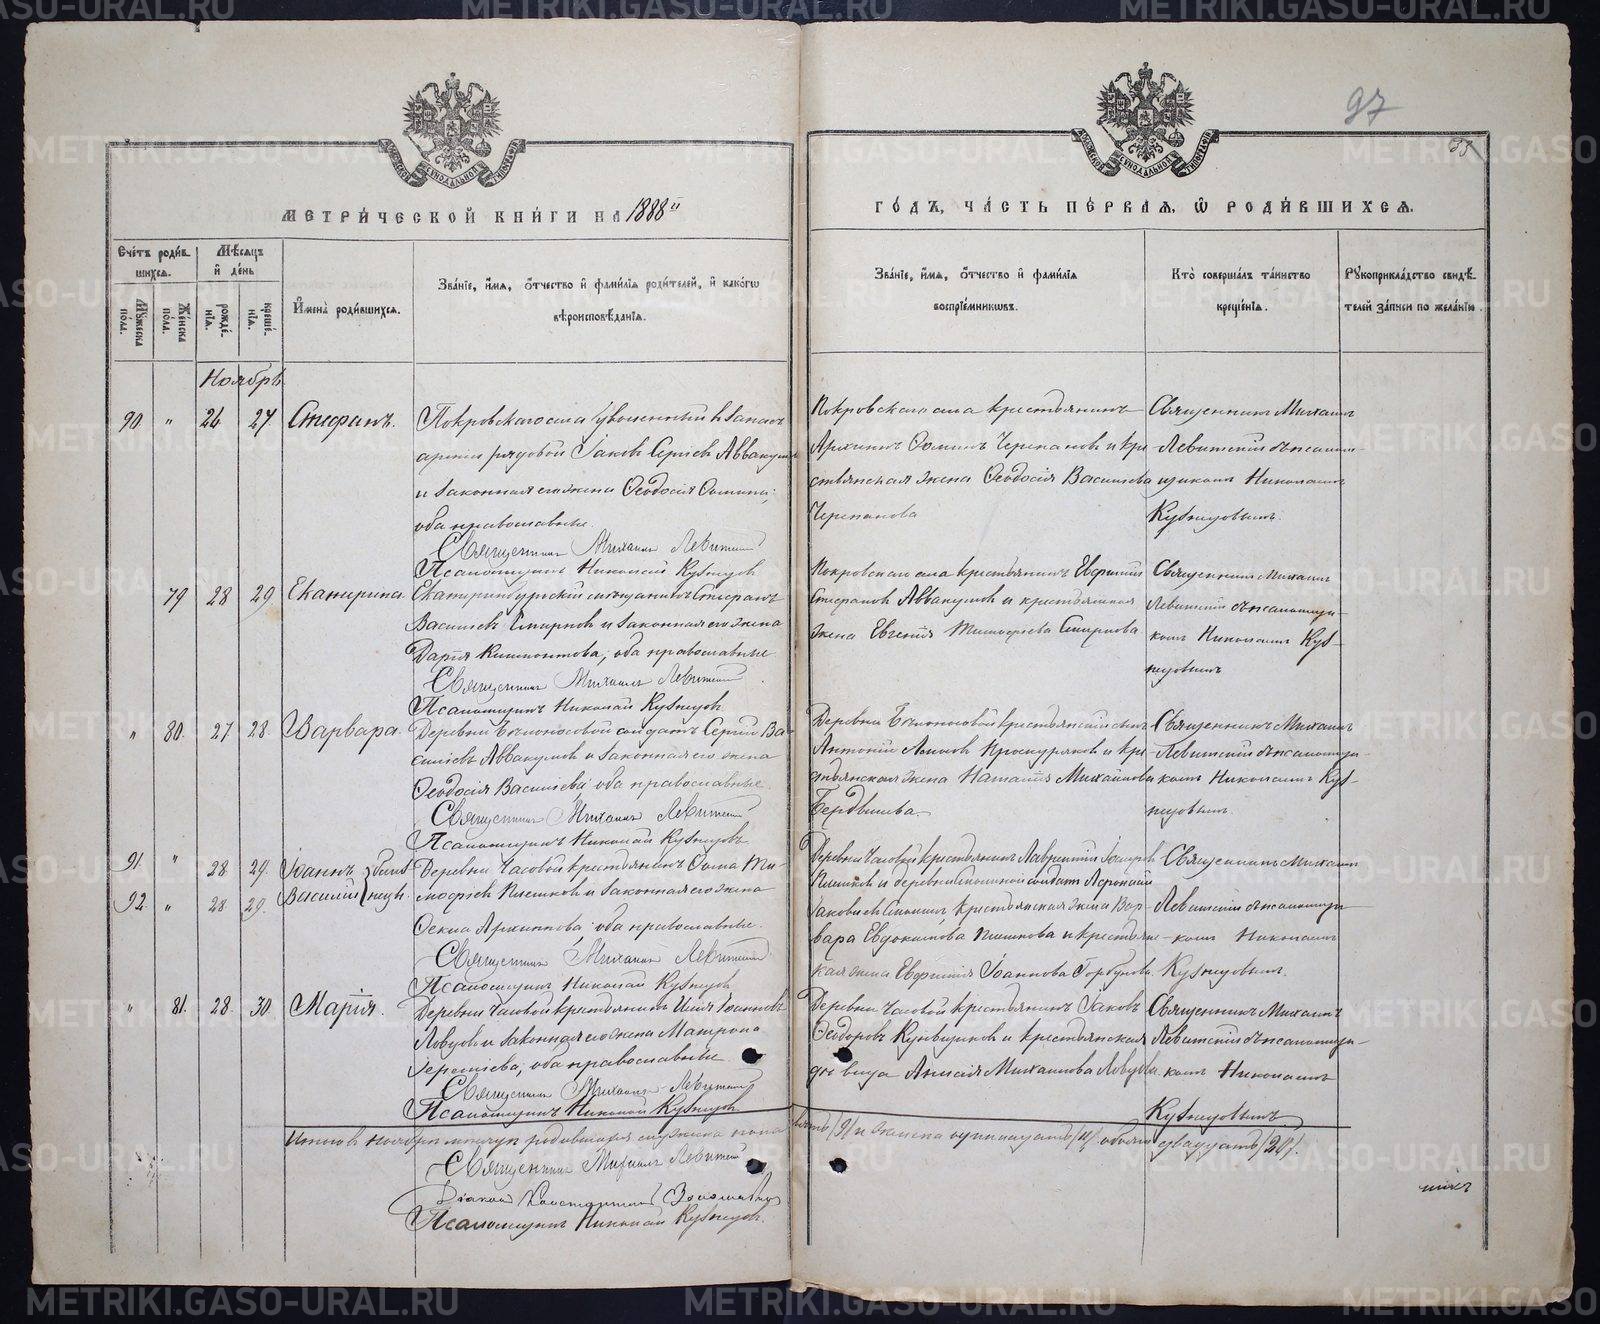 97
МЕТРИ́ЧЕСКОЙ КНИ́ГИ НА 1888й
ГО́ДЪ, ЧА́СТЬ ПЕ́РВАЯ, Ѡ РОДИ́ВШИХСЯ.
Сче́тъ роди́в-
шихся.
Мѣ́сяцъ
и де́нь
Му́жеска
по́ла.
Же́нска
по́ла.
рожде́-
нія.
креще́-
нія.
Имена̀ роди́вшихся.
Зва́ніе, и́мя, о́тчество и фами́лія роди́телей, и како́гѡ
вѣроисповѣ́данія.
Зва́ніе, и́мя, о́тчество и фами́лія
воспріе́мниковъ.
Кто̀ соверша́лъ та́инство
креще́нія.
Рукоприкла́дство свидѣ́-
телей за́писи по жела́нію.
Ноябрь
90. " 26 27 Стефанъ.
Покровскаго села уволенный в запасъ
арміи рядовой Іаковъ Сергіевъ Аввакумовъ
и законная его жена Ѳеодосія Ѳомина;
оба православные.
Священникъ Михаилъ Левитскій
Псаломщикъ Николай Кузнецовъ
Покровскаго села крестьянинъ
Архиппъ Ѳоминъ Черепановъ и кре-
стьянская жена Ѳеодосія Васильева
Черепанова
Священникъ Михаилъ
Левитскій съ псалом-
щикомъ Николаемъ
Кузнецовымъ.
79 28 29 Екатерина
Екатеринбургскій мѣщанинъ Стефанъ
Васильевъ Смирновъ и законная его жена
Дарія Климонтова; оба православные
Священникъ Михаилъ Левитскій
Псаломщикъ Николай Кузнецовъ
Покровскаго села крестьянинъ Евфимій
Стефановъ Аввакумовъ и крестьянская
жена Евгенія Тимофеева Смирнова
Священникъ Михаилъ
Левитскій съ псаломщи-
комъ Николаемъ Куз-
нецовымъ
" 80. 27 28. Варвара.
Деревни Бѣлоносовой солдатъ Сергій Ва-
сильевъ Аввакумовъ и законная его жена
Ѳеодосія Васильева; оба православные.
Священникъ Михаилъ Левитскій
Псаломщикъ Николай Кузнецовъ
Деревни Бѣлоносовой крестьянскій сынъ
Антоній Проскуряковъ и кре-
стьянская жена Наталія Михайлова
Бердышева.
Священникъ Михаилъ
Левитскій съ псаломщи-
комъ Николаемъ Куз-
нецовымъ.
91. " 28 29. Іоаннъ } близ-
92. " 28 29. Василій } нецы.
Деревни Часовой крестьянинъ Ѳома Ти-
моѳеевъ Плешковъ и законная его жена
Ѳекла Архиппова; оба православные.
Священникъ Михаилъ Левитскій
Псаломщикъ Николай Кузнецовъ
Деревни Часовой крестьянинъ Лаврентій
Плешковъ и деревни солдатъ
Іаковлевъ крестьянская жена Вар-
вара Евдокимова Плешкова и крестьянс-
кая жена Евфимія Іоаннова Горбунова.
Священникъ Михаилъ
Левитскій съ псаломщи-
комъ Николаемъ
Кузнецовымъ.
" 81. 28. 30. Марія.
Деревни Часовой крестьянинъ Илія Іоанновъ
Ловцовъ и законная его жена Матрона
оба православные
Священникъ Михаилъ Левитскій
Псаломщикъ Николай Кузнецовъ
Деревни Часовой крестьянинъ Іаковъ
Ѳеодоровъ и крестьянская
дѣвица Анисія Михаилова Ловцова
Священникъ Михаилъ
Левитскій съ псаломщи-
комъ Николаемъ
Кузнецовымъ
Итого в ноябрѣ мѣсяцѣ родившихся мужеска пола девять /9/ и женска одиннадцать /11/ обоего двадцать /20/.
Священникъ Михаилъ Левитскій
Діаконъ Константинъ
Псаломщикъ Николай Кузнецовъ.
METRIKI.GASO-URAL.RU